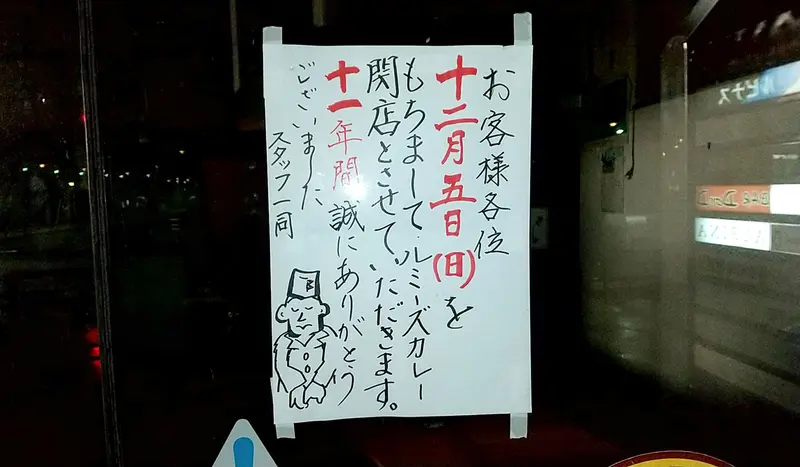 お客様各位
十二月五日(日)を
もちまして、ルミーズカレー
閉店とさせていただきます。
十一年間誠にありがとう
ございました
スタッフ一同
B